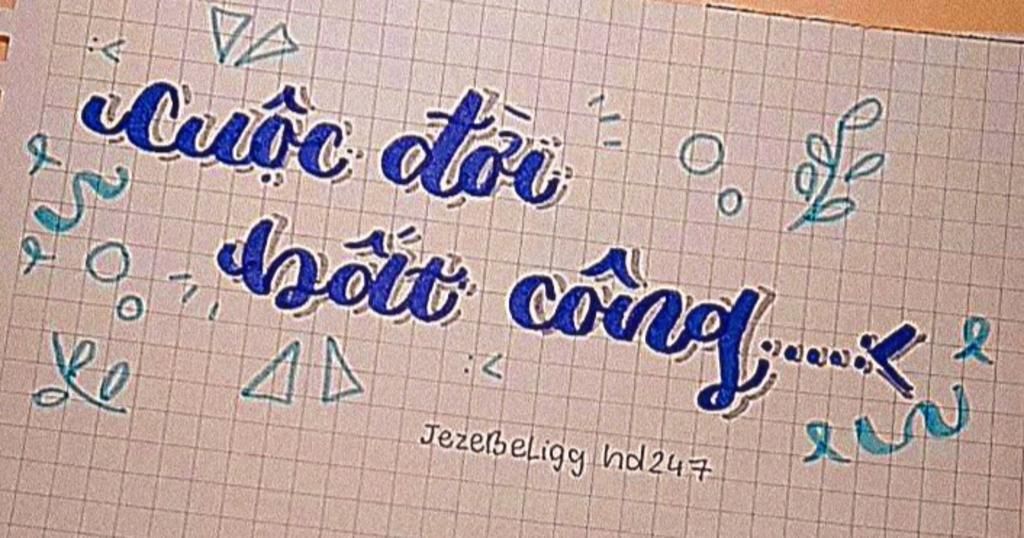 :<
Cuộc đời
bất công.....:<
:<
JezeBeLigg hd247